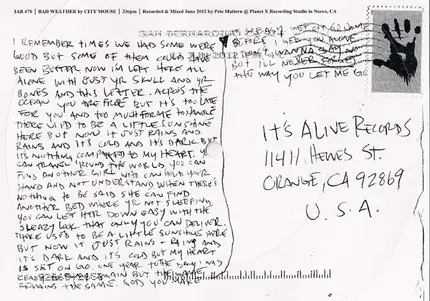 IAR #70 | BAD WEATHER by CITY MOUSE | 33rpm | Recorded & Mixed June 2012 by Pete Mattern @ Planet X Recording Studio in Norco, CA
SAN BERNARDINO
I REMEMBER TIMES WE HAD SOME WERE
GOOD BUT SOME OF THEM COULD HAVE
BEEN BETTER NOW I'M LEFT HERE ALL
ALONE WITH JUST YR SKULL AND YR
BONES AND THIS LETTER. ACROSS THE
OCEAN YOU ARE FREE BUT IT'S TOO LATE
FOR YOU AND TOO MUCH FOR ME TO HANDLE
THERE USED TO BE A LITTLE SUNSHINE
HERE BUT NOW IT JUST RAINS AND
RAINS AND IT'S COLD AND IT'S DARK BUT
IT'S NOTHING COMPARED TO MY HEART. YOU
CAN TRAVEL 'ROUND THE WORLD YOU CAN
FIND ANOTHER GIRL WHO CAN HOLD YOUR
HAND AND NOT UNDERSTAND WHEN THERE'S
NOTHING TO BE SAID SHE CAN FIND
ANOTHER BED WHERE YR NOT SLEEPING.
YOU CAN LET HER DOWN EASY WITH THE
SLEAZY LOOK THAT ONLY YOU CAN DELIVER
THERE USED TO BE A LITTLE SUNSHINE HERE
BUT NOW IT JUST RAINS + RAINS AND
IT'S DARK AND IT'S COLD BUT MY HEART
IS SET ON GO. ONE YEAR TO THE DAY I WAS
AGAIN BUT THE NAME
REMAINS THE SAME. GOD YOU MAKE
ME
BEFORE I ALONE
WANNA
BUT I'LL NEVER FORGET
THE WAY YOU LET ME GO
IT'S ALIVE RECORDS
11411 HEWES ST.
ORANGE, CA 92869
U.S.A.